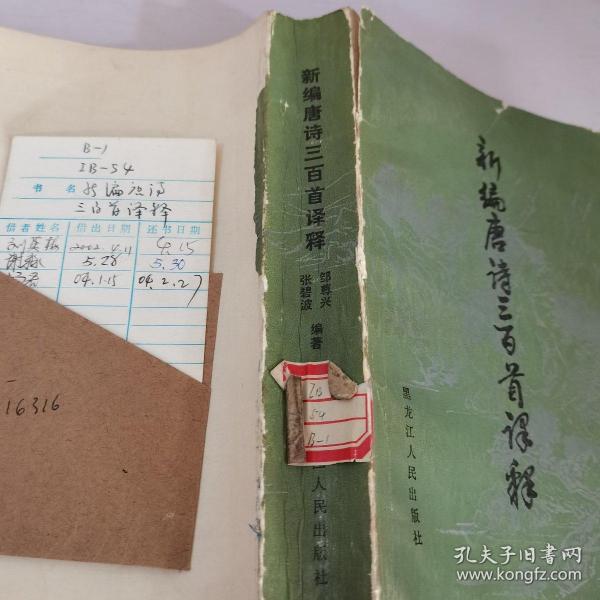 B-1
IB-54
书 名 新编唐诗
三百首译释
借者姓名 借出日期 还书日期
2002.4.11 4.15
5.28 5.30
04.1.15 04.2.27
16316
新编唐诗三百首译释
邹尊兴
张碧波
编著
IB
54
B-1
江人民出版社
新编唐诗三百首译释
黑龙江人民出版社
孔夫子旧书网
www.kongfz.com